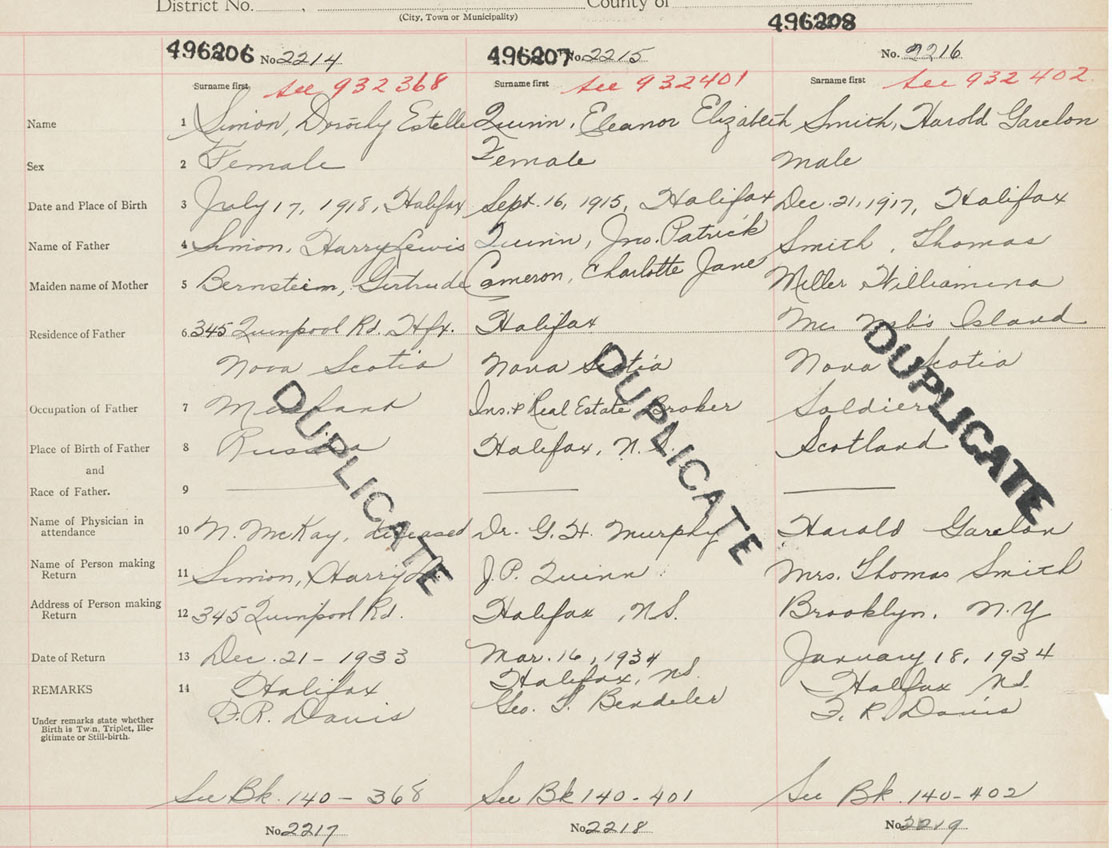 District No. , County of
(City, Town or Municipality)
496208
496206 No. 2214 496207 No. 2215 No. 2216
Surname first See 932368 Surname first See 932401 Surname first See 932402
Name 1 Simon, Dorothy Estelle Quinn, Eleanor Elizabeth Smith, Harold Garelon
Sex 2 Female Female Male
Date and Place of Birth 3 July 17, 1918, Halifax Sept. 16, 1915, Halifax Dec. 21, 1917, Halifax
Name of Father 4 Simon, Harry Lewis Quinn, Jno. Patrick Smith, Thomas
Maiden name of Mother 5 Bernstein, Gertrude Cameron, Charlotte Jane Miller Williamina
Residence of Father 6 345 Quinpool Rd. Hfx. Halifax Mc Nib's Island
Nova Scotia Nova Scotia Nova Scotia
Occupation of Father 7 Ins. & Real Estate Broker Soldier
Place of Birth of Father 8 Russia Halifax, N.S. Scotland
and
Race of Father. 9
Name of Physician in
attendance 10 N. McKay, deceased Dr. G. H. Murphy Harold Garelon
Name of Person making
Return 11 Simon, Harry L. J.P. Quinn Mrs. Thomas Smith
Address of Person making
Return 12 345 Quinpool Rd. Halifax, N.S. Brooklyn, N.Y
Date of Return 13 Dec. 21 - 1933 Mar. 16, 1934 January 18, 1934
REMARKS 14 Halifax Halifax, N.S. Halifax N.S.
F.R. Davis Geo. F. R. Davis
Under remarks state whether
Birth is Twin, Triplet, Ille-
gitimate or Still-birth.
DUPLICATE DUPLICATE DUPLICATE
See Bk. 140 - 368 See Bk 140 - 401 See Bk. 140-402
No. 2217 No. 2218 No. 2219